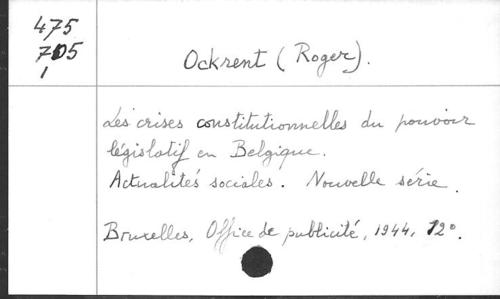 475
705
1
Ockrent (Roger).
Les crises constitutionnelles du pouvoir
législatif en Belgique.
Actualités sociales. Nouvelle série.
Bruxelles, Office de publicité, 1944, 12°.